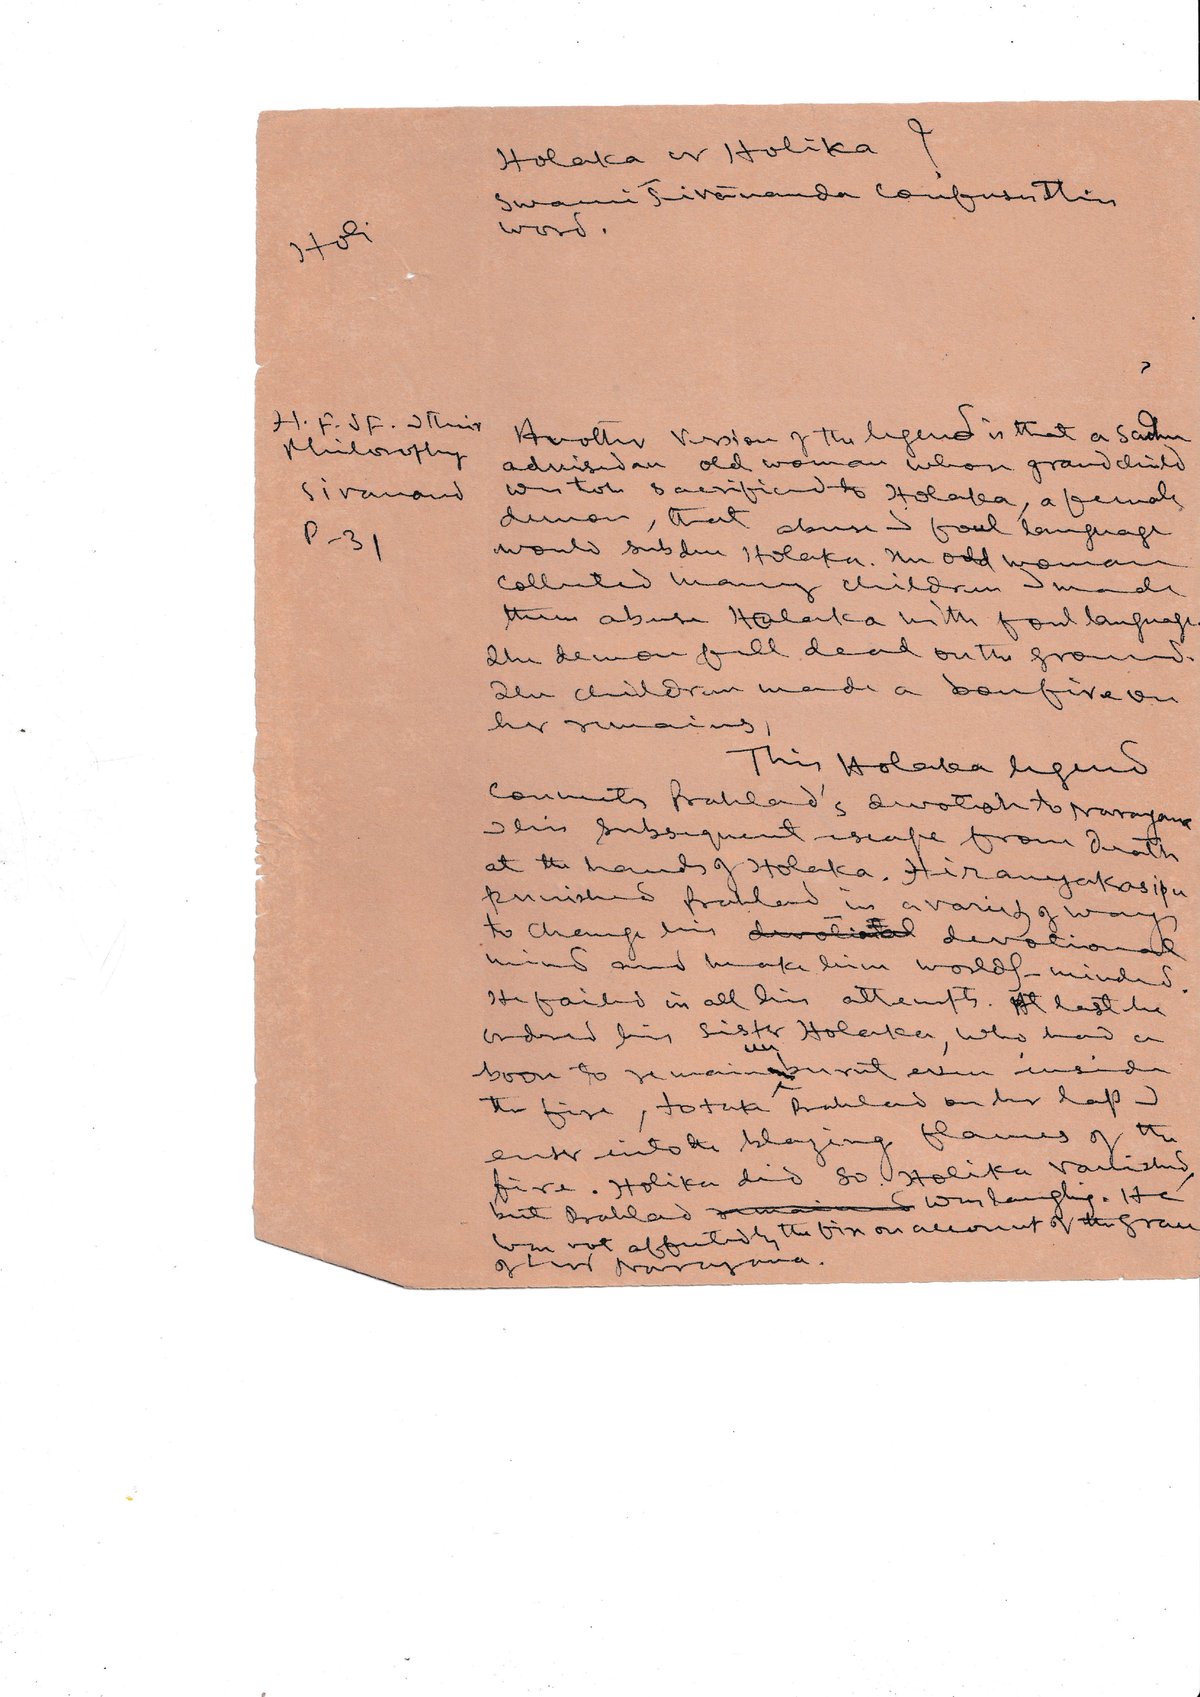 Holaka or Holika ?
Swami Sivānanda confuses this
word.
Holi
H. F. & F. & their
Philosophy
Sivanand
P-31
Another version of the legend is that a Sadhu
advised an old woman whose grandchild
was to be sacrificed to Holaka, a female
demon, that abuse & foul language
would subdue Holaka. The old woman
collected many children & made
them abuse Holaka with foul language.
The demon fell dead on the ground.
The children made a bonfire on
her remains.
This Holaka legend
connects Prahlad's devotion to Narayana
& his subsequent escape from death
at the hands of Holaka. Hiranyakasipu
punished Prahlad in a variety of ways
to change his devotional devotional
mind and make him worldly-minded.
He failed in all his attempts. At last he
ordered his sister Holaka, who had a
boon to remain unburnt even inside
the fire, to take Prahlad on her lap &
enter into the blazing flames of the
fire. Holika did so. Holika vanished,
but Prahlad remained was laughing. He
was not affected by the fire on account of the grace
of Lord Narayana.